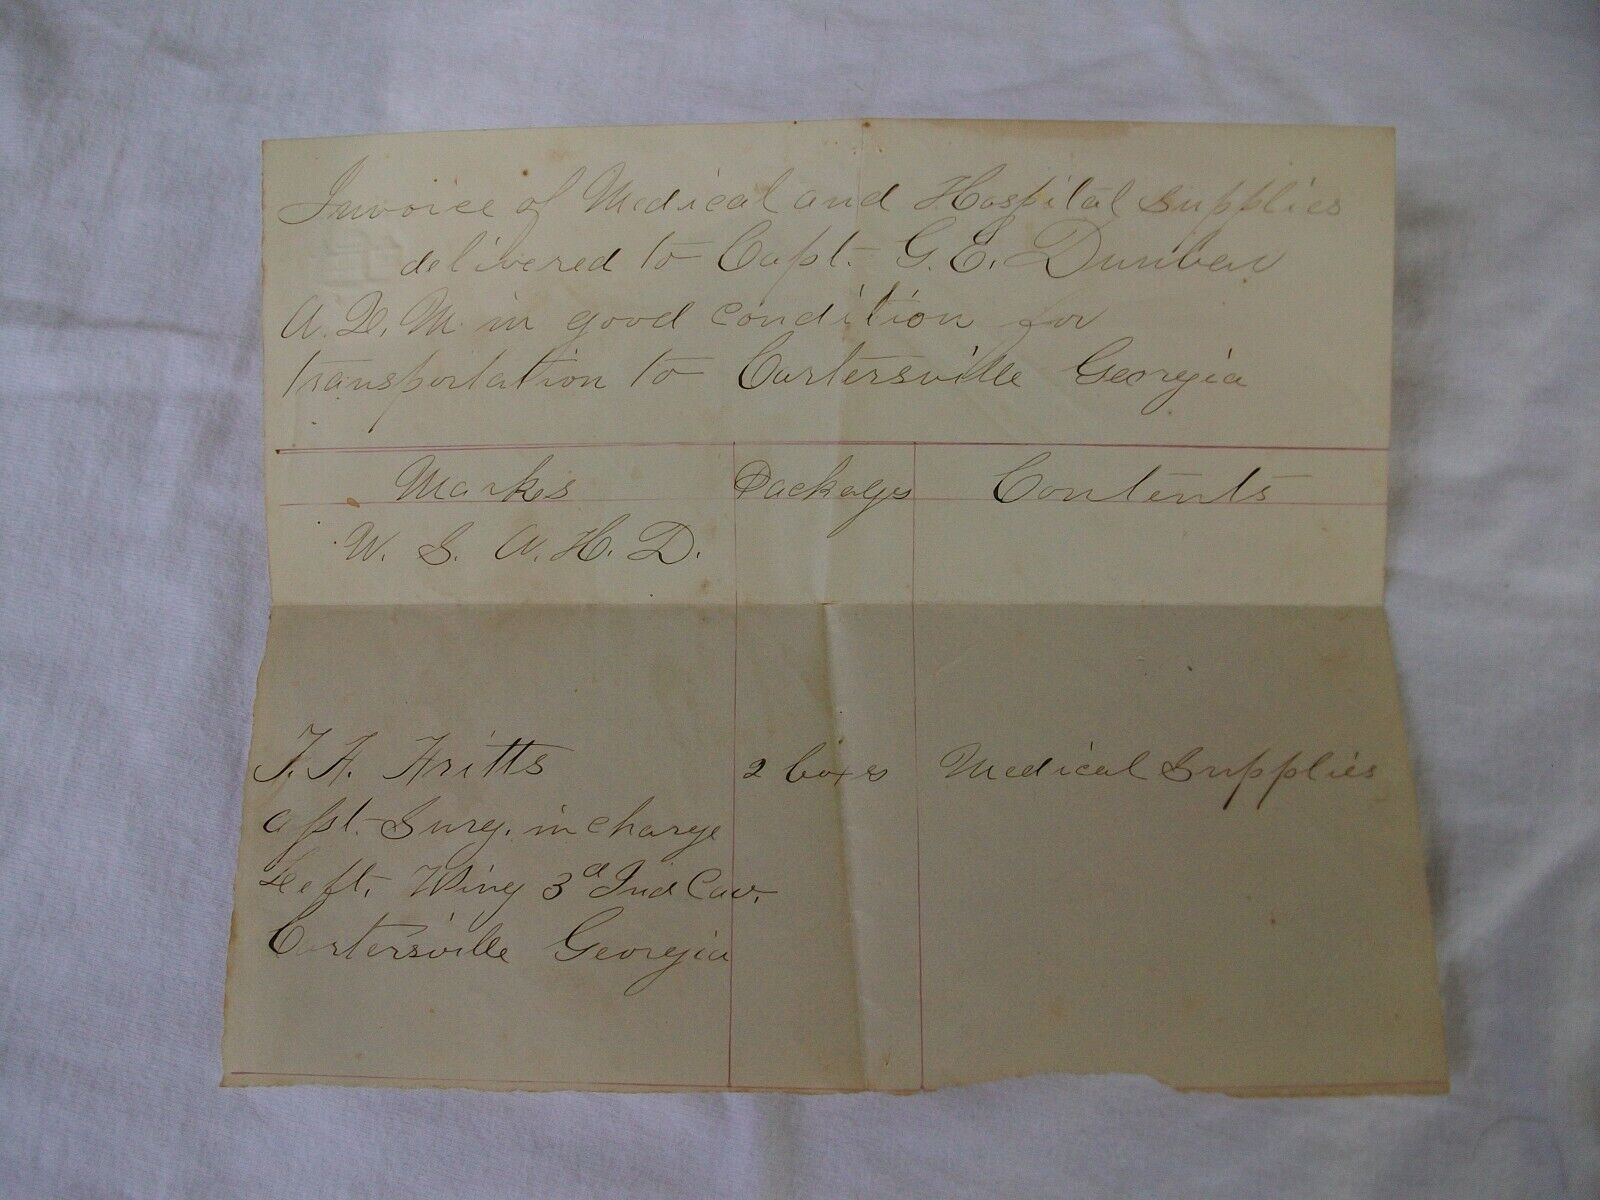 Invoice of Medical and Hospital Supplies
delivered to Capt. G. E. Dunbar
A. Q. M. in good condition for
transportation to Cartersville Georgia
Marks Packages Contents
U. S. A. H. D.
F. A. Fritts 2 boxes Medical Supplies
Asst. Surg. in charge
Left. Wing 3d Ind Cav.
Cartersville Georgia